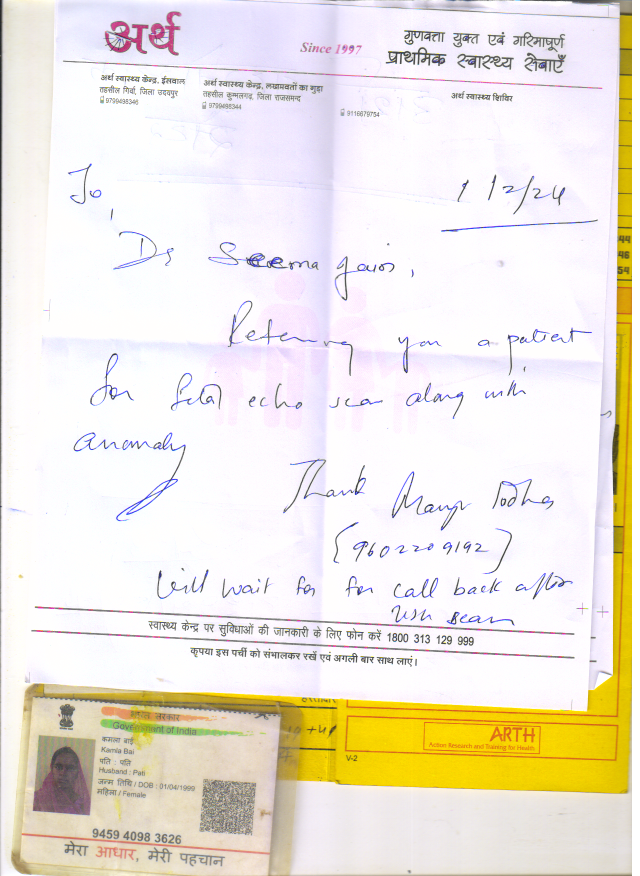 अर्थ
Since 1997
गुणवत्ता युक्त एवं गरिमापूर्ण
प्राथमिक स्वास्थ्य सेवाएँ
अर्थ स्वास्थ्य केन्द्र, ईसवाल
तहसील गिर्वा, जिला उदयपुर
9799498346
अर्थ स्वास्थ्य केन्द्र, लखमावतों का गुड़ा
तहसील कुम्भलगढ़, जिला राजसमन्द
9799498344
9116679754
अर्थ स्वास्थ्य शिविर
To,
1/2/24
Dr Seema Jain,
Referring you a patient
for fetal echo scan along with
anomaly
Thank
(9602209192)
Will wait for for call back after
scan
स्वास्थ्य केन्द्र पर सुविधाओं की जानकारी के लिए फोन करें 1800 313 129 999
कृपया इस पर्ची को संभालकर रखें एवं अगली बार साथ लाएं।
44
46
54
ARTH
Action Research and Training for Health
V-2
भारत सरकार
Government of India
कमला बाई
Kamla Bai
पति : पति
Husband : Pati
जन्म तिथि / DOB : 01/04/1999
महिला / Female
9459 4098 3626
मेरा आधार, मेरी पहचान